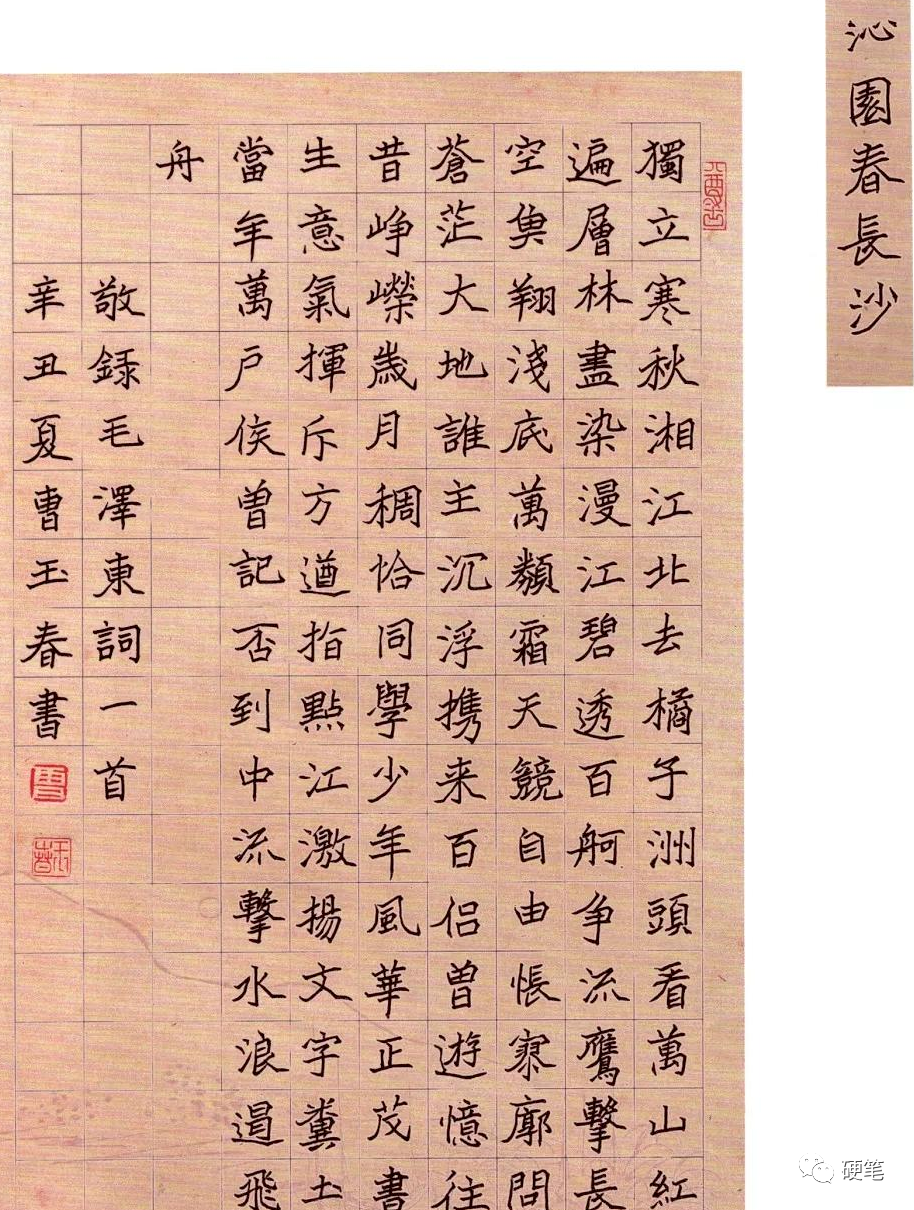 沁園春長沙
獨立寒秋湘江北去橘子洲頭看萬山紅
遍層林盡染漫江碧透百舸争流鷹擊長
空魚翔淺底萬類霜天競自由悵寥廓問
蒼茫大地誰主沉浮携来百侣曾遊憶往
昔崢嶸歲月稠恰同學少年風華正茂書
生意氣揮斥方遒指點江激揚文字糞土
當年萬户侯曾記否到中流擊水浪遏飛
舟
敬録毛澤東詞一首
辛丑夏曹玉春書
硬笔